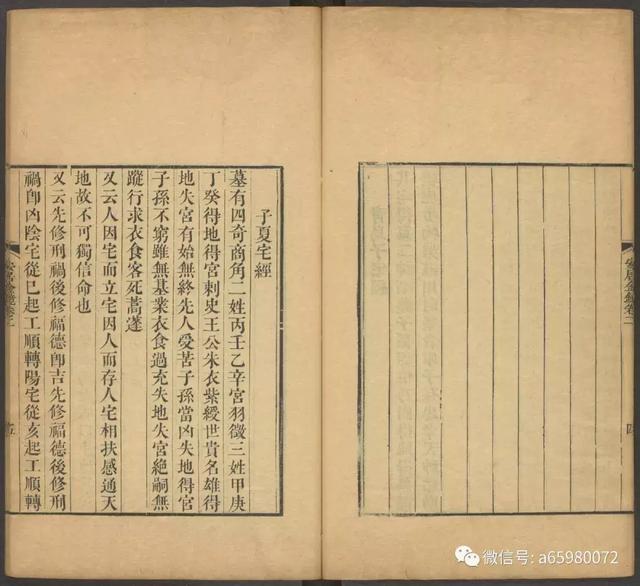 子夏宅經
墓有四奇商角二姓丙壬乙辛宮羽徵三姓甲庚
丁癸得地得宮刺史王公朱衣紫綬世貴名雄得
地失宮有始無終先人受苦子孫當凶失地得宮
子孫不窮雖無基業衣食過充失地失宮絶嗣無
蹤行求衣食客死蒿蓬
又云人因宅而立宅因人而存人宅相扶感通天
地故不可獨信命也
又云先修刑禍後修福德卽吉先修福德後修刑
禍卽凶陰宅從巳起工順轉陽宅從亥起工順轉
安居金鏡卷二
五
安居金鏡卷二
四
微信号: a65980072